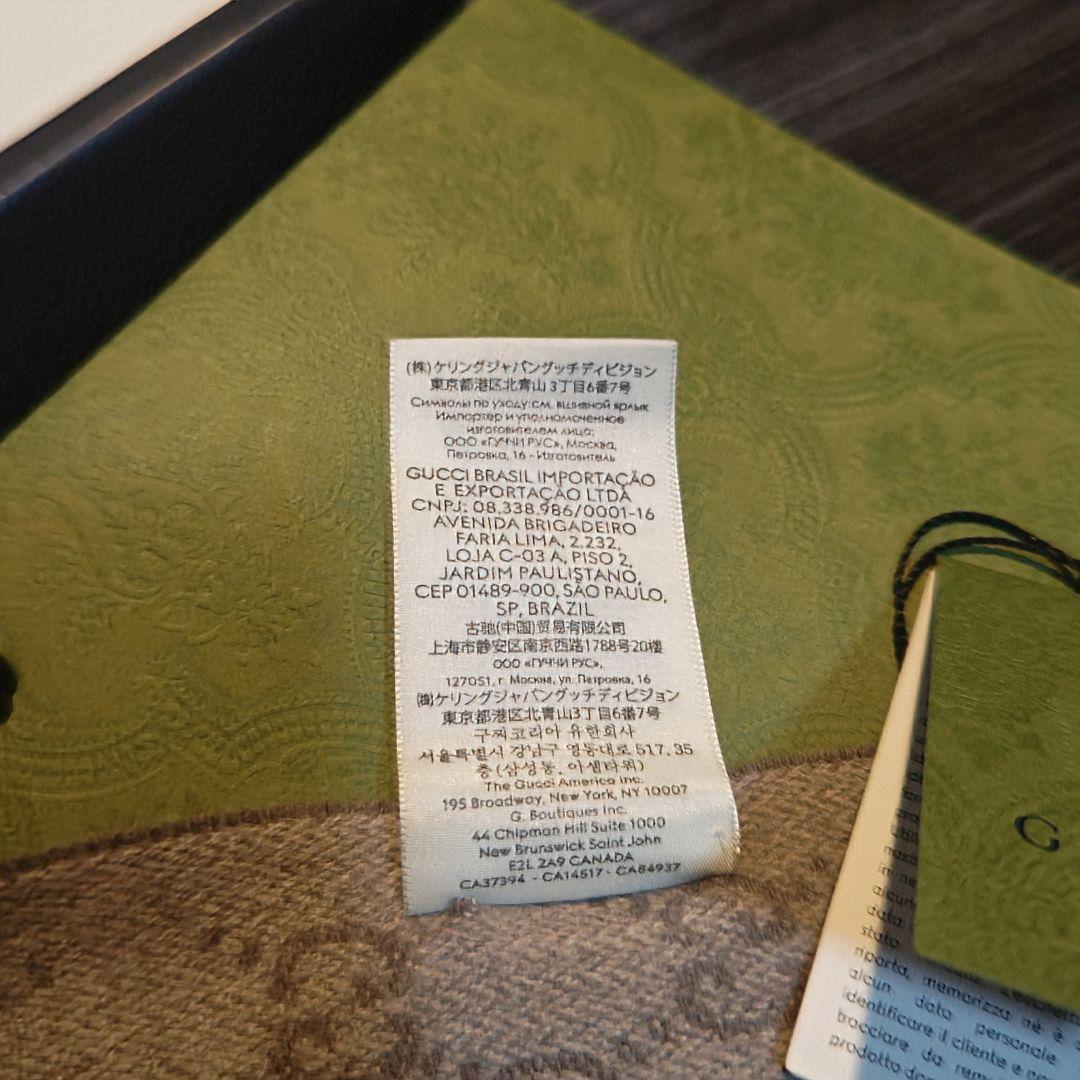 (株)ケリングジャパングッチディビジョン
東京都港区北青山3丁目6番7号
Символы по уходу:см. вшивной ярлык
Импортер и уполномоченное
изготовителем лицо:
ООО «ГУЧЧИ РУС», Москва,
Петровка, 16 - Изготовитель
GUCCI BRASIL IMPORTAÇÃO
E EXPORTAÇÃO LTDA
CNPJ: 08.338.986/0001-16
AVENIDA BRIGADEIRO
FARIA LIMA, 2.232,
LOJA C-03 A, PISO 2,
JARDIM PAULISTANO,
CEP 01489-900, SÃO PAULO,
SP, BRAZIL
古驰(中国)贸易有限公司
上海市静安区南京西路1788号20楼
ООО «ГУЧЧИ РУС»,
127051, г. Москва, ул. Петровка, 16
㈱ケリングジャパングッチディビジョン
東京都港区北青山3丁目6番7号
구찌코리아 유한회사
서울특별시 강남구 영동대로 517, 35
층 (삼성동, 아셈타워)
The Gucci America Inc.
195 Broadway, New York, NY 10007
G. Boutiques Inc.
44 Chipman Hill Suite 1000
New Brunswick Saint John
E2L 2A9 CANADA
CA37394 - CA14517 - CA84937
G
in ne
alcun
data
stato
riporta, memorizza né è
alcun dato personale
identificare il cliente e
tracciare da rem
prodotto do